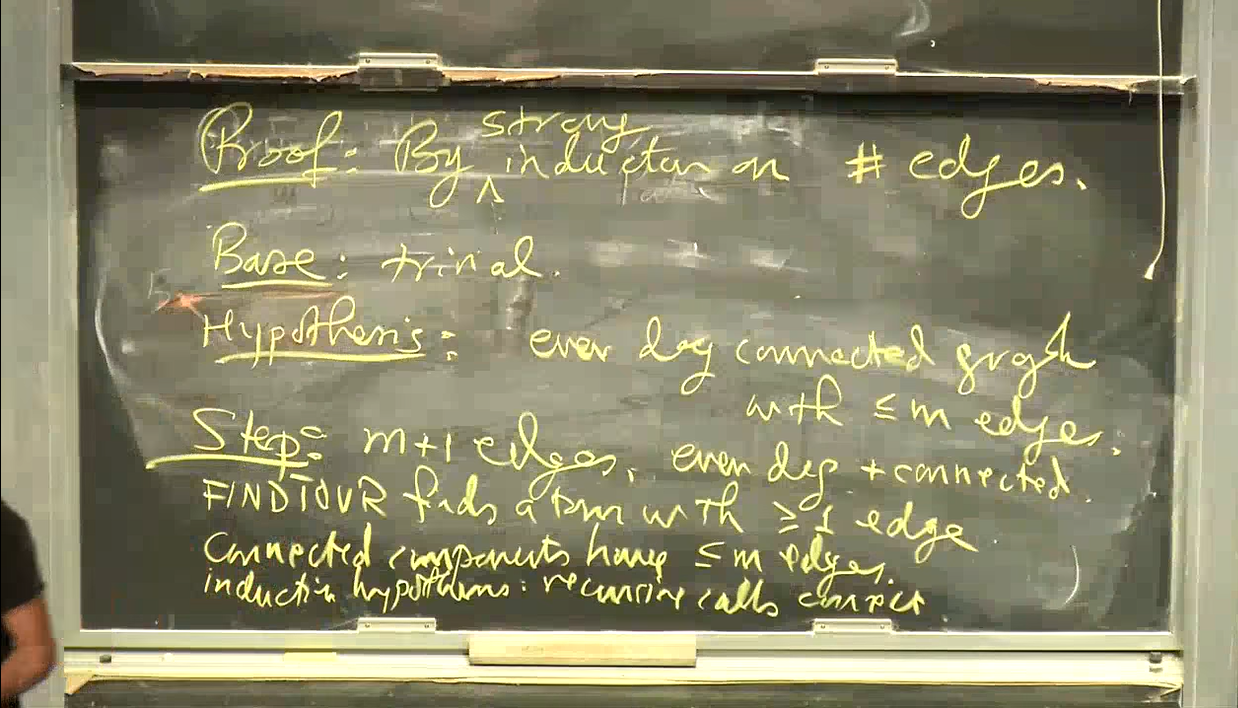 Proof: By strong induction on # edges.
Base: trivial.
Hypothesis: even deg connected graph
with ≤ m edges.
Step: m+1 edges, even deg + connected.
FINDTOUR finds a tour with ≥ 1 edge
Connected components have ≤ m edges.
induction hypothesis: recursive calls correct